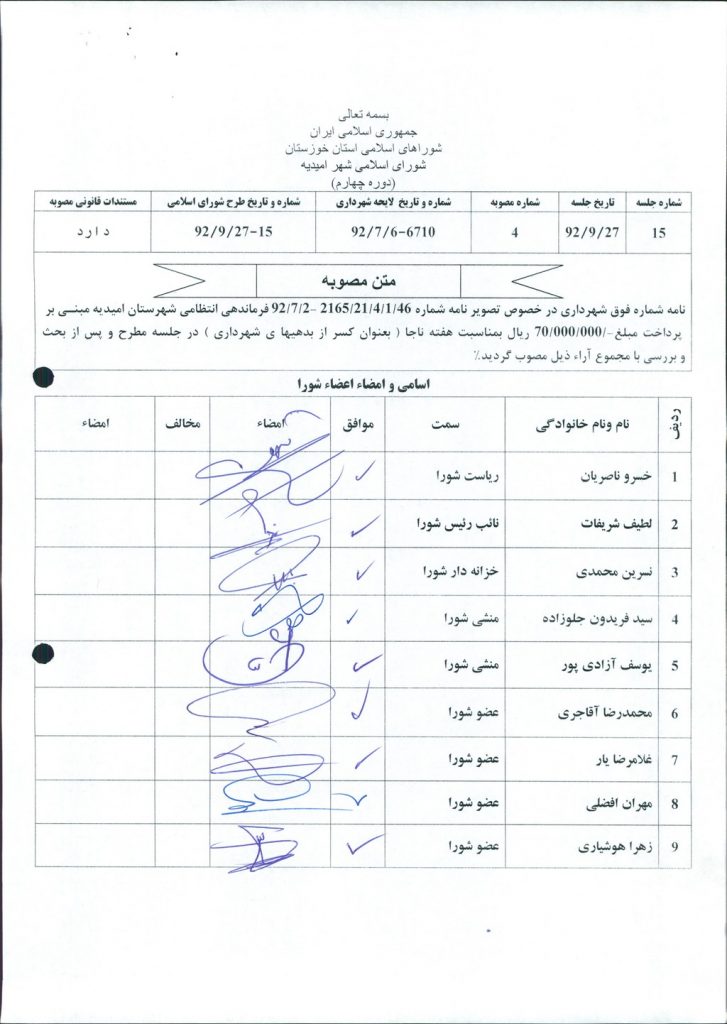 بسمه تعالی
جمهوری اسلامی ایران
شوراهای اسلامی استان خوزستان
شورای اسلامی شهر امیدیه
(دوره چهارم)
شماره جلسه تاریخ جلسه شماره مصوبه شماره و تاریخ لایحه شهرداری شماره و تاریخ طرح شورای اسلامی مستندات قانونی مصوبه
15 92/9/27 4 92/7/6-6710 92/9/27-15 دارد
متن مصوبه
نامه شماره فوق شهرداری در خصوص تصویر نامه شماره 2165/21/4/1/46 –92/7/2 فرماندهی انتظامی شهرستان امیدیه مبنی بر
پرداخت مبلغ-/70/000/000 ریال بمناسبت هفته ناجا ( بعنوان کسر از بدهیها ی شهرداری ) در جلسه مطرح و پس از بحث
و بررسی با مجموع آراء ذیل مصوب گردید.٪
اسامی و امضاء اعضاء شورا
ردیف نام ونام خانوادگی سمت موافق امضاء مخالف امضاء
1 خسرو ناصریان ریاست شورا
2 لطیف شریفات نائب رئیس شورا
3 نسرین محمدی خزانه دار شورا
4 سید فریدون جلوزاده منشی شورا
5 یوسف آزادی پور منشی شورا
6 محمدرضا آقاجری عضو شورا
7 غلامرضا یار عضو شورا
8 مهران افضلی عضو شورا
9 زهرا هوشیاری عضو شورا